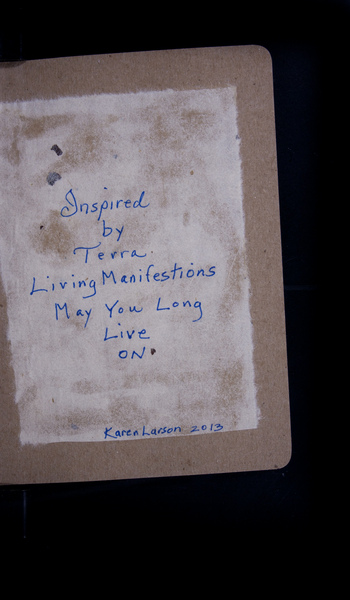 Inspired
by
Terra.
Living Manifestions
May You Long
Live
ON.
Karen Larson 2013